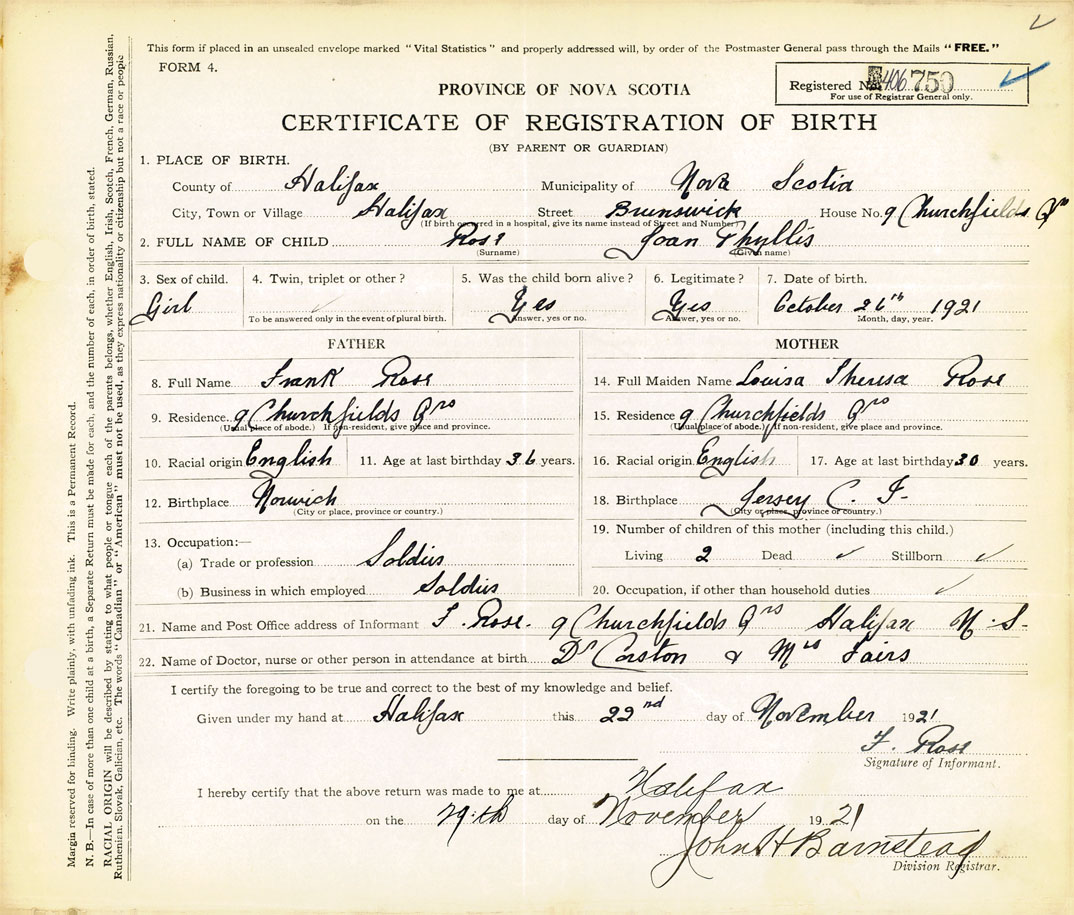 This form if placed in an unsealed envelope marked "Vital Statistics" and properly addressed will, by order of the Postmaster General pass through the Mails "FREE."
FORM 4.
Registered No. 406 750
For use of Registrar General only.
PROVINCE OF NOVA SCOTIA
CERTIFICATE OF REGISTRATION OF BIRTH
(BY PARENT OR GUARDIAN)
1. PLACE OF BIRTH.
County of Halifax Municipality of Nova Scotia
City, Town or Village Halifax Street Brunswick House No. 9 Churchfields Qrs
(If birth occurred in a hospital, give its name instead of Street and Number)
2. FULL NAME OF CHILD Rose Joan Phyllis
(Surname) (Given name)
3. Sex of child. 4. Twin, triplet or other? 5. Was the child born alive? 6. Legitimate? 7. Date of birth.
Girl Yes Yes October 26th 1921
To be answered only in the event of plural birth. Answer, yes or no. Answer, yes or no. Month, day, year.
FATHER MOTHER
8. Full Name Frank Rose 14. Full Maiden Name Louisa Theresa Rose
9. Residence 9 Churchfields Qrs 15. Residence 9 Churchfields Qrs
(Usual place of abode.) If non-resident, give place and province. (Usual place of abode.) If non-resident, give place and province.
10. Racial origin English 11. Age at last birthday 36 years. 16. Racial origin English 17. Age at last birthday 30 years.
12. Birthplace Norwich 18. Birthplace Jersey C. I.
(City or place, province or country.) (City or place, province or country.)
13. Occupation:— 19. Number of children of this mother (including this child.)
(a) Trade or profession Soldier Living 2 Dead Stillborn
(b) Business in which employed Soldier 20. Occupation, if other than household duties
21. Name and Post Office address of Informant F. Rose. 9 Churchfields Qrs Halifax N.S.
22. Name of Doctor, nurse or other person in attendance at birth Dr Corston & Mrs Fairs
I certify the foregoing to be true and correct to the best of my knowledge and belief.
Given under my hand at Halifax this 22nd day of November 1921
F. Rose
Signature of Informant.
I hereby certify that the above return was made to me at Halifax
on the 29th day of November 1921
John H Barnstead
Division Registrar.
Margin reserved for binding. Write plainly, with unfading ink. This is a Permanent Record.
N. B.—In case of more than one child at a birth, a Separate Return must be made for each, and the number of each, in order of birth, stated.
RACIAL ORIGIN will be described by stating to what people or tongue each of the parents belongs, whether English, Irish, Scotch, French, German, Russian,
Ruthenian, Slovak, Galician, etc. The words "Canadian" or "American" must not be used, as they express nationality or citizenship but not a race or people